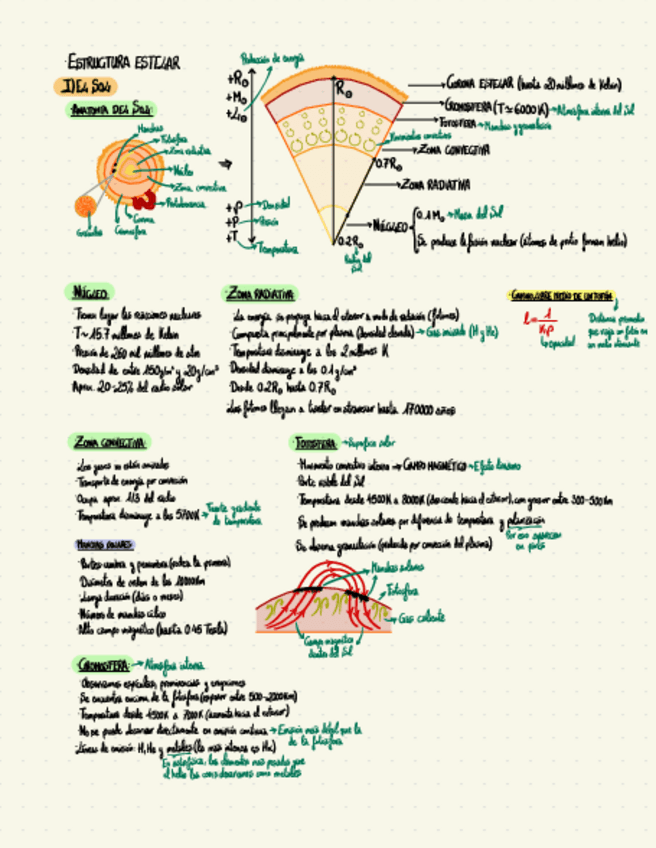 ESTRUCTURA ESTELAR
DEL SOL
ANATOMÍA DEL SOL
Manchas
Fotosfera
Zona radiativa
Núcleo
Zona convectiva
Protuberancia
Corona
Cromosfera
Gránulos
Producción de energía
+R⊙
+M⊙
+L⊙
+ρ → Densidad
+P → Presión
+T → Temperatura
R⊙
0.7R⊙
0.2R⊙
Radio del Sol
CORONA ESTELAR (hasta 20 millones de Kelvin)
CROMOSFERA (T≃6000K) → Atmósfera interna del Sol
FOTOSFERA → Manchas y granulación
Movimientos convectivos
ZONA CONVECTIVA
ZONA RADIATIVA
NÚCLEO
0.1M⊙ → Masa del Sol
Se produce la fusión nuclear (átomos de protio forman helio)
NÚCLEO
·Tienen lugar las reacciones nucleares
·T~15.7 millones de Kelvin
·Presión de 260 mil millones de atm
·Densidad de entre 150g/cm³ y 20g/cm³
·Aprox. 20-25% del radio solar
ZONA RADIATIVA
·La energía se propaga hacia el exterior a modo de radiación (fotones)
·Compuesta principalmente por plasma (densidad elevada) → Gas ionizado (H y He)
·Temperatura disminuye a los 2 millones K
·Densidad disminuye a los 0.1g/cm³
·Desde 0.2R⊙ hasta 0.7R⊙
·Los fotones llegan a tardar en atravesar hasta 170000 años
CAMINO LIBRE MEDIO DE UN FOTÓN
l = 1/Kρ
opacidad
Distancia promedio
que viaja un fotón en
un medio
ZONA CONVECTIVA
·Los gases no están ionizados
·Transporte de energía por convección
·Ocupa aprox. 1/3 del radio
·Temperatura disminuye a los 5700K → Fuerte gradiente
de temperatura
FOTOSFERA → Superficie solar
·Movimiento convectivo interno → CAMPO MAGNÉTICO → Efecto dinamo
·Parte visible del Sol
·Temperatura desde 4500K a 8000K (desciende hacia el exterior), con grosor entre 300-500km
·Se producen manchas solares por diferencia de temperatura y polarización
Por eso aparecen
en pares
·Se observa granulación (producida por convección del plasma)
MANCHAS SOLARES
·Partes: umbra y penumbra (rodea la primera)
·Diámetro de orden de los 10000km
·Larga duración (días o meses)
·Número de manchas cíclico
·Alto campo magnético (hasta 0.45 Tesla)
Manchas solares
Fotosfera
Gas caliente
Campo magnético
dentro del Sol
CROMOSFERA → Atmósfera interna
·Observamos espículas, prominencias y erupciones
·Se encuentra encima de la fotosfera (espesor entre 500-2000Km)
·Temperatura desde 4500K a 7000K (aumenta hacia el exterior)
·No se puede observar directamente en emisión continua → Emisión más débil que la
de la fotosfera
·Líneas de emisión: H, He y metales (la más intensa es Hα)
En astrofísica, los elementos más pesados que
el helio los consideramos como metales